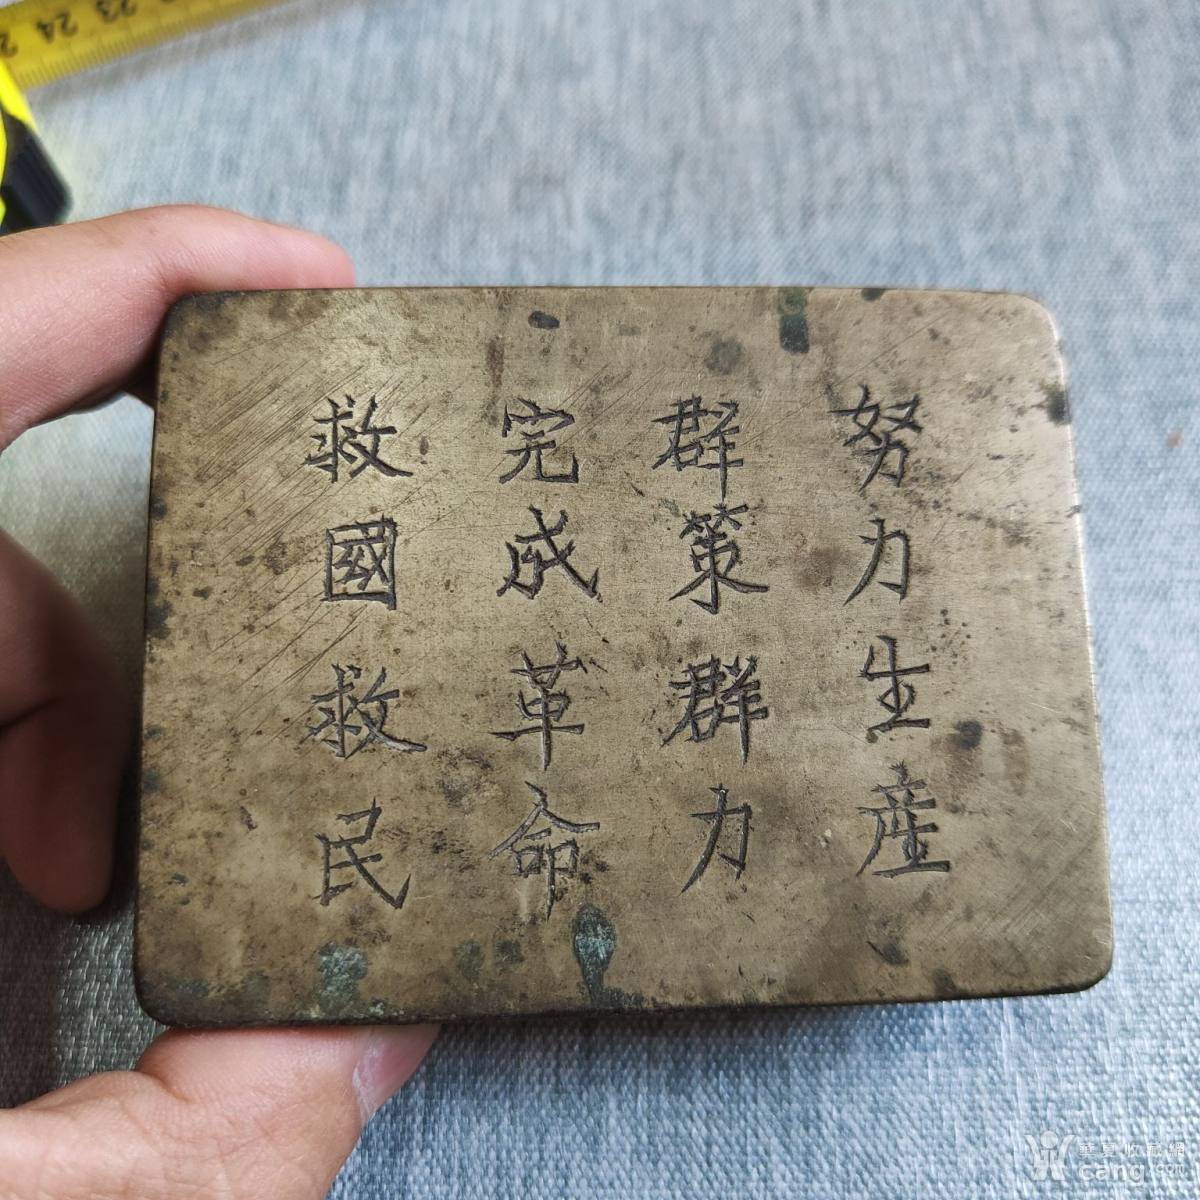 努力生產
群策群力
完成革命
救國救民
23
24
華夏收藏網
cang.com